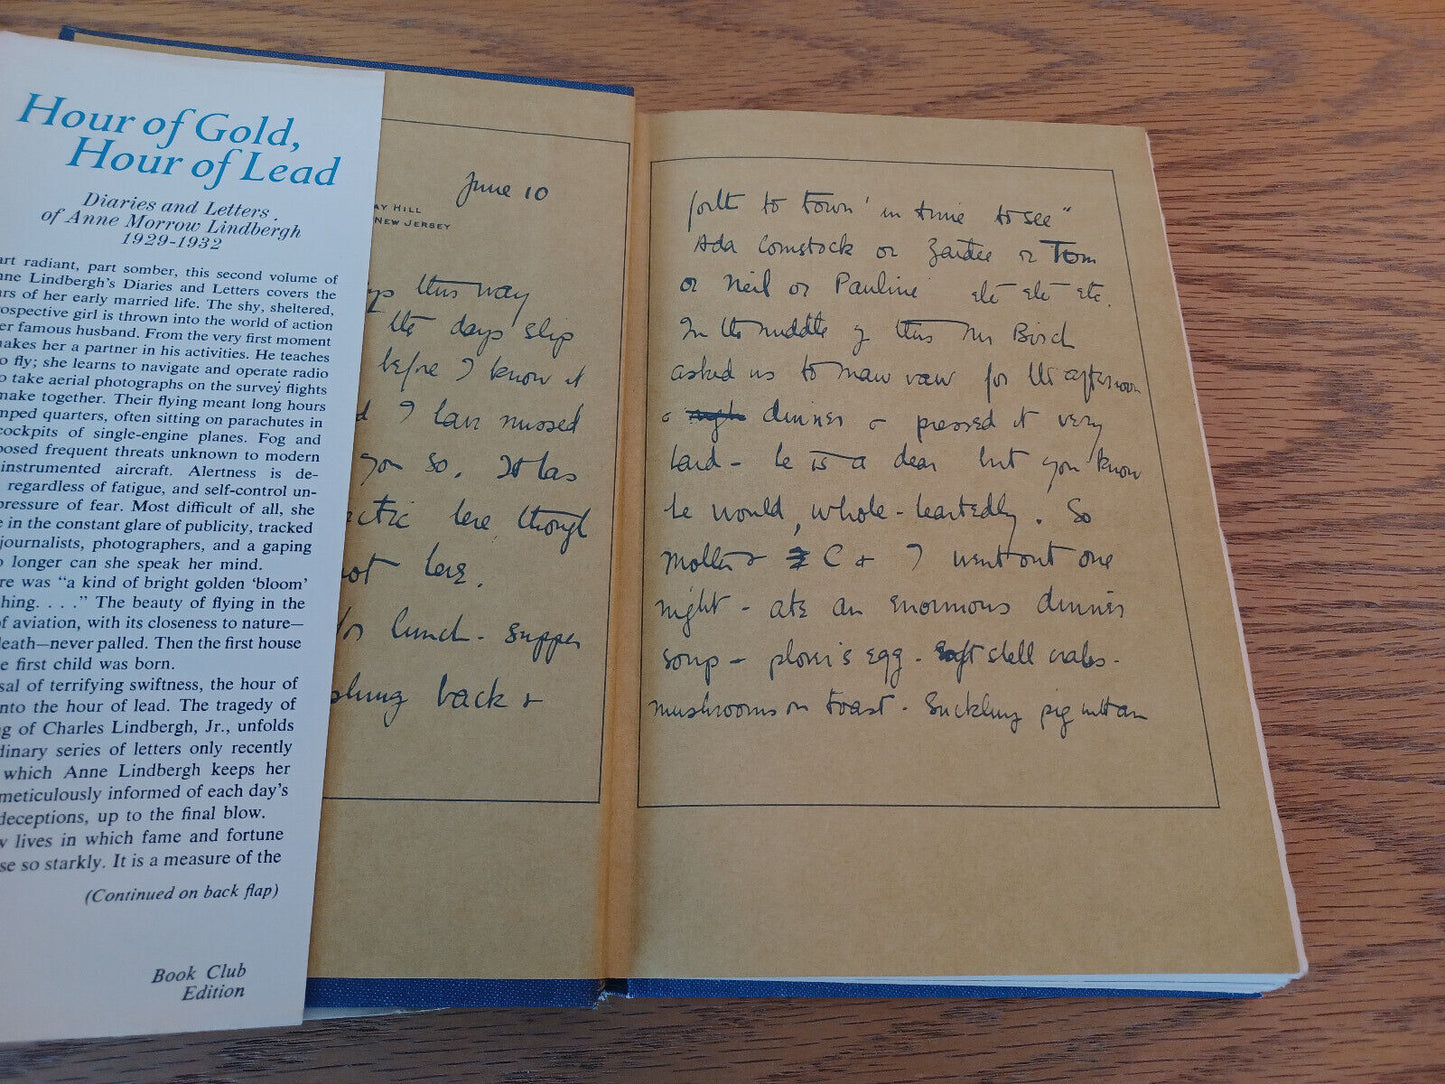 Hour of Gold,
Hour of Lead
Diaries and Letters
of Anne Morrow Lindbergh
1929-1932
art radiant, part somber, this second volume of
nne Lindbergh's Diaries and Letters covers the
ars of her early married life. The shy, sheltered,
ospective girl is thrown into the world of action
er famous husband. From the very first moment
makes her a partner in his activities. He teaches
o fly; she learns to navigate and operate radio
o take aerial photographs on the survey flights
make together. Their flying meant long hours
mped quarters, often sitting on parachutes in
cockpits of single-engine planes. Fog and
posed frequent threats unknown to modern
instrumented aircraft. Alertness is de-
regardless of fatigue, and self-control un-
pressure of fear. Most difficult of all, she
e in the constant glare of publicity, tracked
journalists, photographers, and a gaping
o longer can she speak her mind.
re was "a kind of bright golden 'bloom'
hing. . . ." The beauty of flying in the
of aviation, with its closeness to nature—
death—never palled. Then the first house
e first child was born.
sal of terrifying swiftness, the hour of
nto the hour of lead. The tragedy of
ng of Charles Lindbergh, Jr., unfolds
dinary series of letters only recently
which Anne Lindbergh keeps her
meticulously informed of each day's
deceptions, up to the final blow.
w lives in which fame and fortune
se so starkly. It is a measure of the
(Continued on back flap)
Book Club
Edition
June 10
AY HILL
NEW JERSEY
ys this way
the days slip
before I know it
d I have missed
you so. It has
ectic here though
not here.
for lunch - supper
shing back &
forth to town "in time to see"
Ada Comstock or or Tom
or Neil or Pauline etc etc etc.
In the middle of this Mr Birch
asked us to for the afternoon
& dinner & pressed it very
hard - he is a dear but you know
he would, whole-heartedly. So
Mother & C & I went out one
night - ate an enormous dinner
soup - plover's egg - soft shell crabs -
mushrooms on toast - Suckling pig